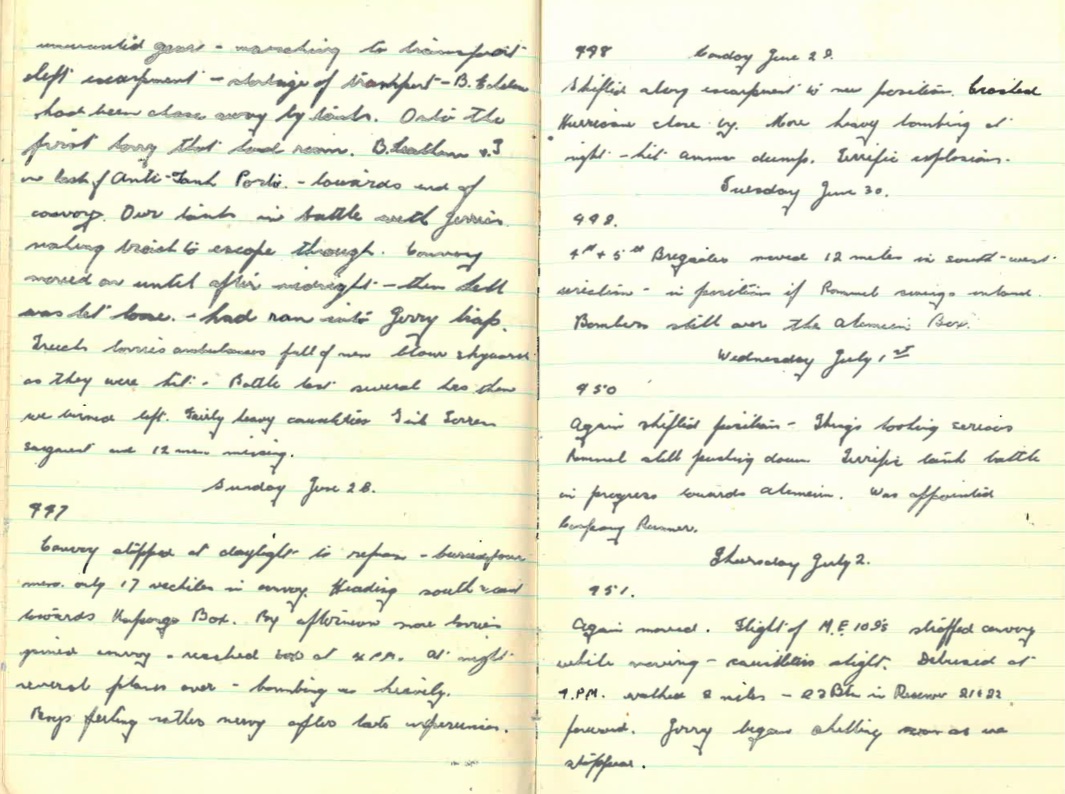 unwanted gear - marching to transport
left escarpment - shortage of transport - B. Echelon
had been chase away by tanks. Onto the
first lorry that had room.
on last of Anti-Tank Porté. - towards end of
convoy. Our tanks in battle with Jerries
making track to escape through. Convoy
moved on until after midnight - then hell
was let loose. - had ran into Jerry trap.
Trucks lorries ambulances full of men blown skyward
as they were hit. Battle last several hrs then
we turned left. Fairly heavy casualties
Sargeant and 12 men missing.
Sunday June 28.
447
Convoy stopped at daylight to reform - buried four
men. only 17 vechiles in convoy. Heading south
towards Kaponga Box. By afternoon more lorries
joined convoy - reached box at 4 P.M. At night
several planes over - bombing us heavily.
Boys feeling rather nervy after late experiences.
448 Monday June 29.
Shifted along escarpment to new position. Crashed
Hurricane close by. More heavy bombing at
night - hit ammo dump. Terrific explosions.
Tuesday June 30.
449.
4th + 5th Brigades moved 12 miles in south-west
direction - in position if Rommel swings inland.
Bombers still over the Alamein Box.
Wednesday July 1st
450
Again shifted position - Things looking serious
Rommel still pushing down Terrific tank battle
in progress towards Alamein. Was appointed
Company Runner.
Thursday July 2.
451.
Again moved. Flight of M.E. 109s straffed convoy
while moving - casualties slight. Debussed at
4 P.M. walked 2 miles - 23 Btn in Reserve 21 & 22
forward. Jerry began shelling soon as we
stopped.